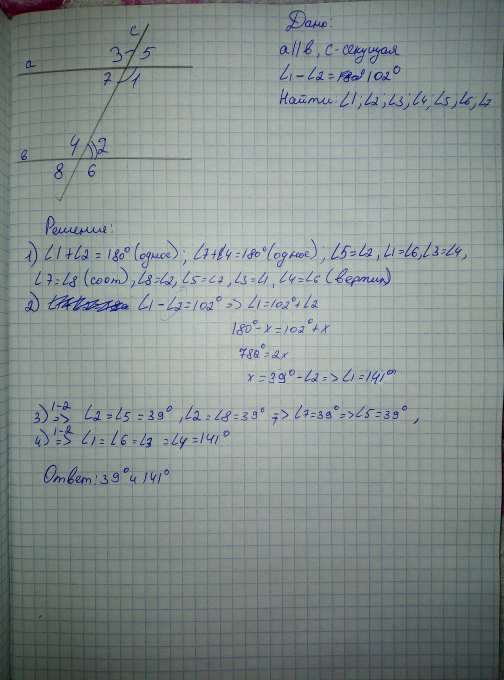 c
3 5
a
7 1
4 2
в
8 6
Дано:
a||в, c-секущая
∠1-∠2=102°
Найти: ∠1;∠2;∠3;∠4;∠5;∠6;∠7
Решение:
1) ∠1+∠2=180° (однос); ∠7+∠4=180° (однос), ∠5=∠2, ∠1=∠6, ∠3=∠4,
∠7=∠8 (соот), ∠8=∠2, ∠5=∠7, ∠3=∠1, ∠4=∠6 (вертик)
2) ∠1-∠2=102° => ∠1=102°+∠2
180°-x=102°+x
78°=2x
x=39°-∠2=>∠1=141°
3) 1-2 => ∠2=∠5=39°, ∠2=∠8=39° => ∠7=39°=>∠5=39°,
4) 1-2 => ∠1=∠6=∠3=∠4=141°
Ответ: 39° и 141°